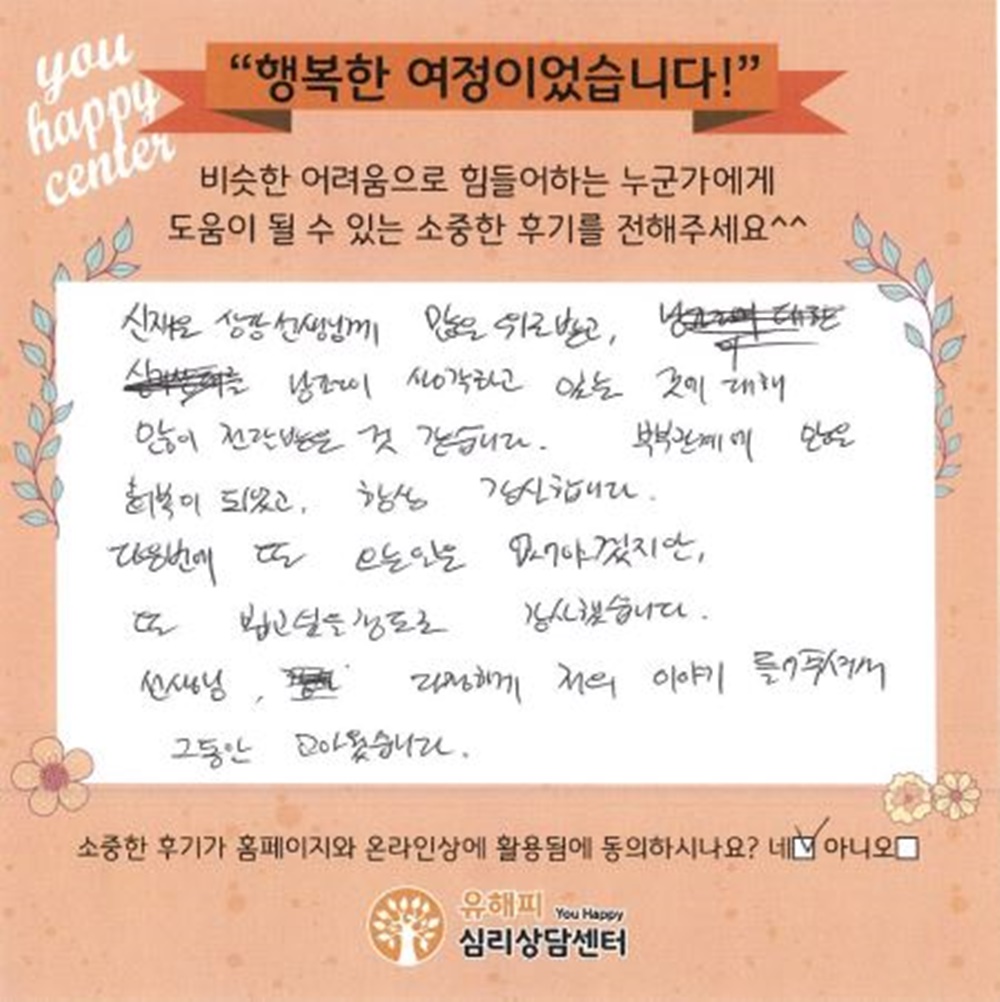 you
happy
center
“행복한 여정이었습니다!”
비슷한 어려움으로 힘들어하는 누군가에게
도움이 될 수 있는 소중한 후기를 전해주세요^^
신재은 상담선생님께 많은 위로받고,
남편이 생각하고 있는 것에 대해
많이 전달받은 것 같습니다. 부부관계에 많은
회복이 되었고, 항상 감사합니다.
다음번에 또 오는일은 없어야겠지만,
또 뵙고싶을정도로 감사했습니다.
선생님, 다정하게 저의 이야기 들어주셔서
그동안 고마웠습니다.
소중한 후기가 홈페이지와 온라인상에 활용됨에 동의하시나요? 네 아니오
유해피 You Happy
심리상담센터